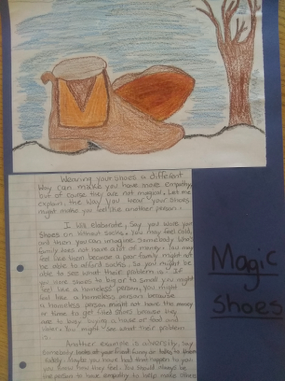 Wearing your shoes a different
way can make you have more empathy
but of course they are not magical. Let me
explain, the way you wear your shoes
might make you feel like another person.
I will elaborate, Say, you wore your
shoes on without socks. You may feel cold,
and then you can imagine Somebody who's
family does not have a lot of money. You may
feel like them because a poor family might not
be able to afford socks. So you might be
able to see what those problem is. If
you wore shoes to big or to small you might
feel like a homeless person. You might
feel like a homeless person because
a homeless person might not have the money
or time to get fitted shoes because they
are to busy trying to have or food and
water. You might see what their problem
is.
Another example is diversity, say
somebody looks at your friend funny or talks to them
rudely. Maybe you have had that happen to you
you know how they feel. You should always be
the person to have empathy to help make others
Magic
Shoes